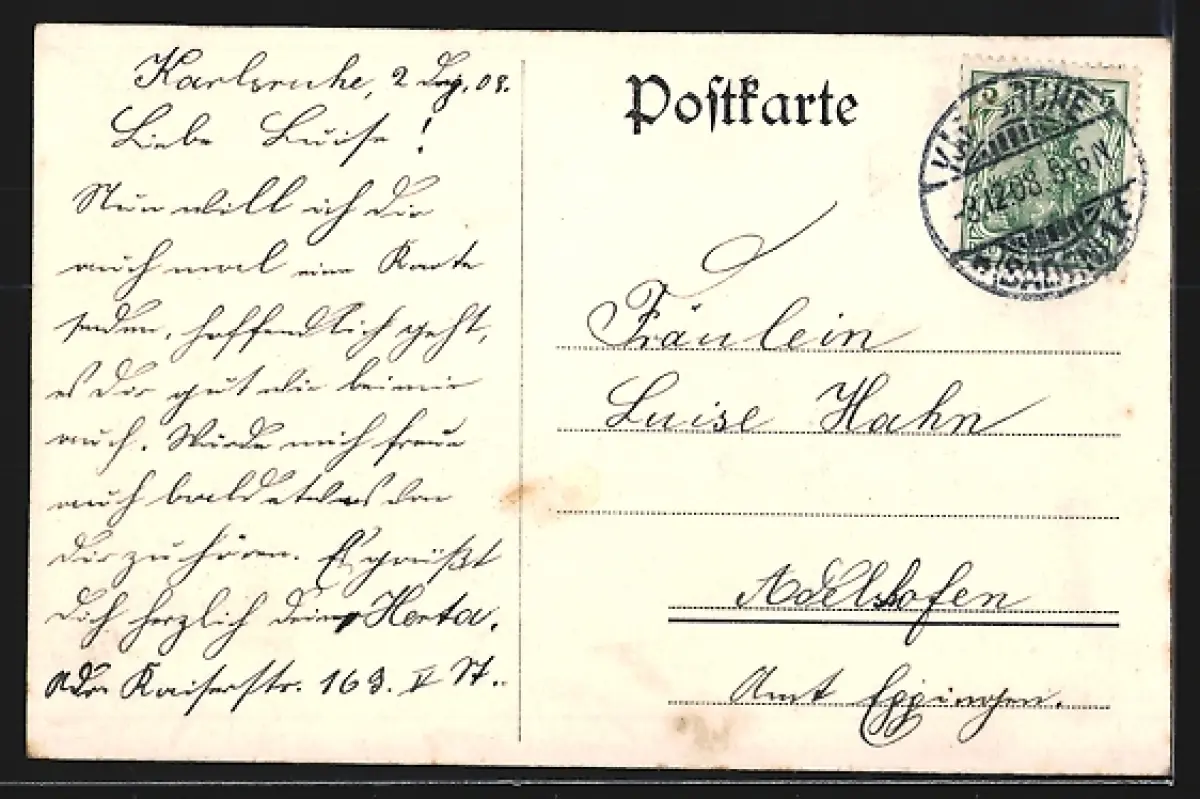 Karlsruhe, 2 Dez. 08.
Liebe Luise!
Nun will ich dir
auch mal eine Karte
senden, hoffendlich geht,
es dir gut wie bei mir
auch. Würde mich freuen
auch bald etwas von
dir zu hören. Es grüßt
dich herzlich deine Herta.
Adr. Kaiserstr. 163. V St..
Postkarte
5 5
KARLSRUHE
-3.12.08. 5-6 N
* (BADEN) 1
Fräulein
Luise Hahn
Adelshofen
Amt Eppingen.